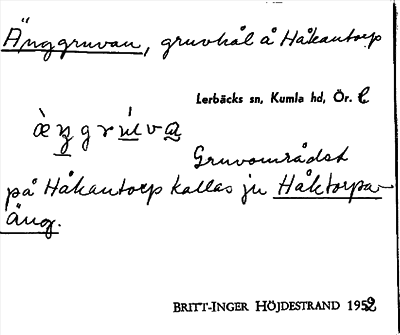 Änggruvan, gruvhål å Håkantorp
Lerbäcks sn, Kumla hd, Ör. l.
Gruvområdet
på Håkantorp kallas ju Håktorpa-
Äng.
BRITT-INGER HÖJDESTRAND 1952